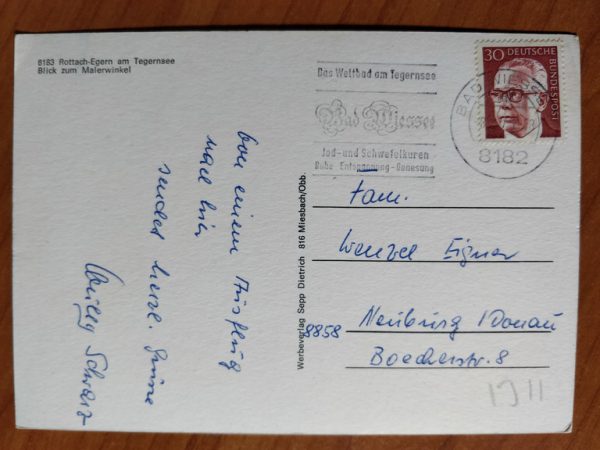 8183 Rottach-Egern am Tegernsee
Blick zum Malerwinkel
Das Weltbad am Tegernsee
Bad Wiessee
Jod- und Schwefelkuren
Ruhe Entspannung-Genesung
30
DEUTSCHE
BUNDESPOST
BAD WIESSEE
8182
Von einem Ausflug
nach hier
sendet herzl. Grüsse
Schwarz
Werbeverlag Sepp Dietrich 816 Miesbach/Obb.
Fam.
Wenzel Eigner
8858 Neuburg/Donau
Boecherstr. 8